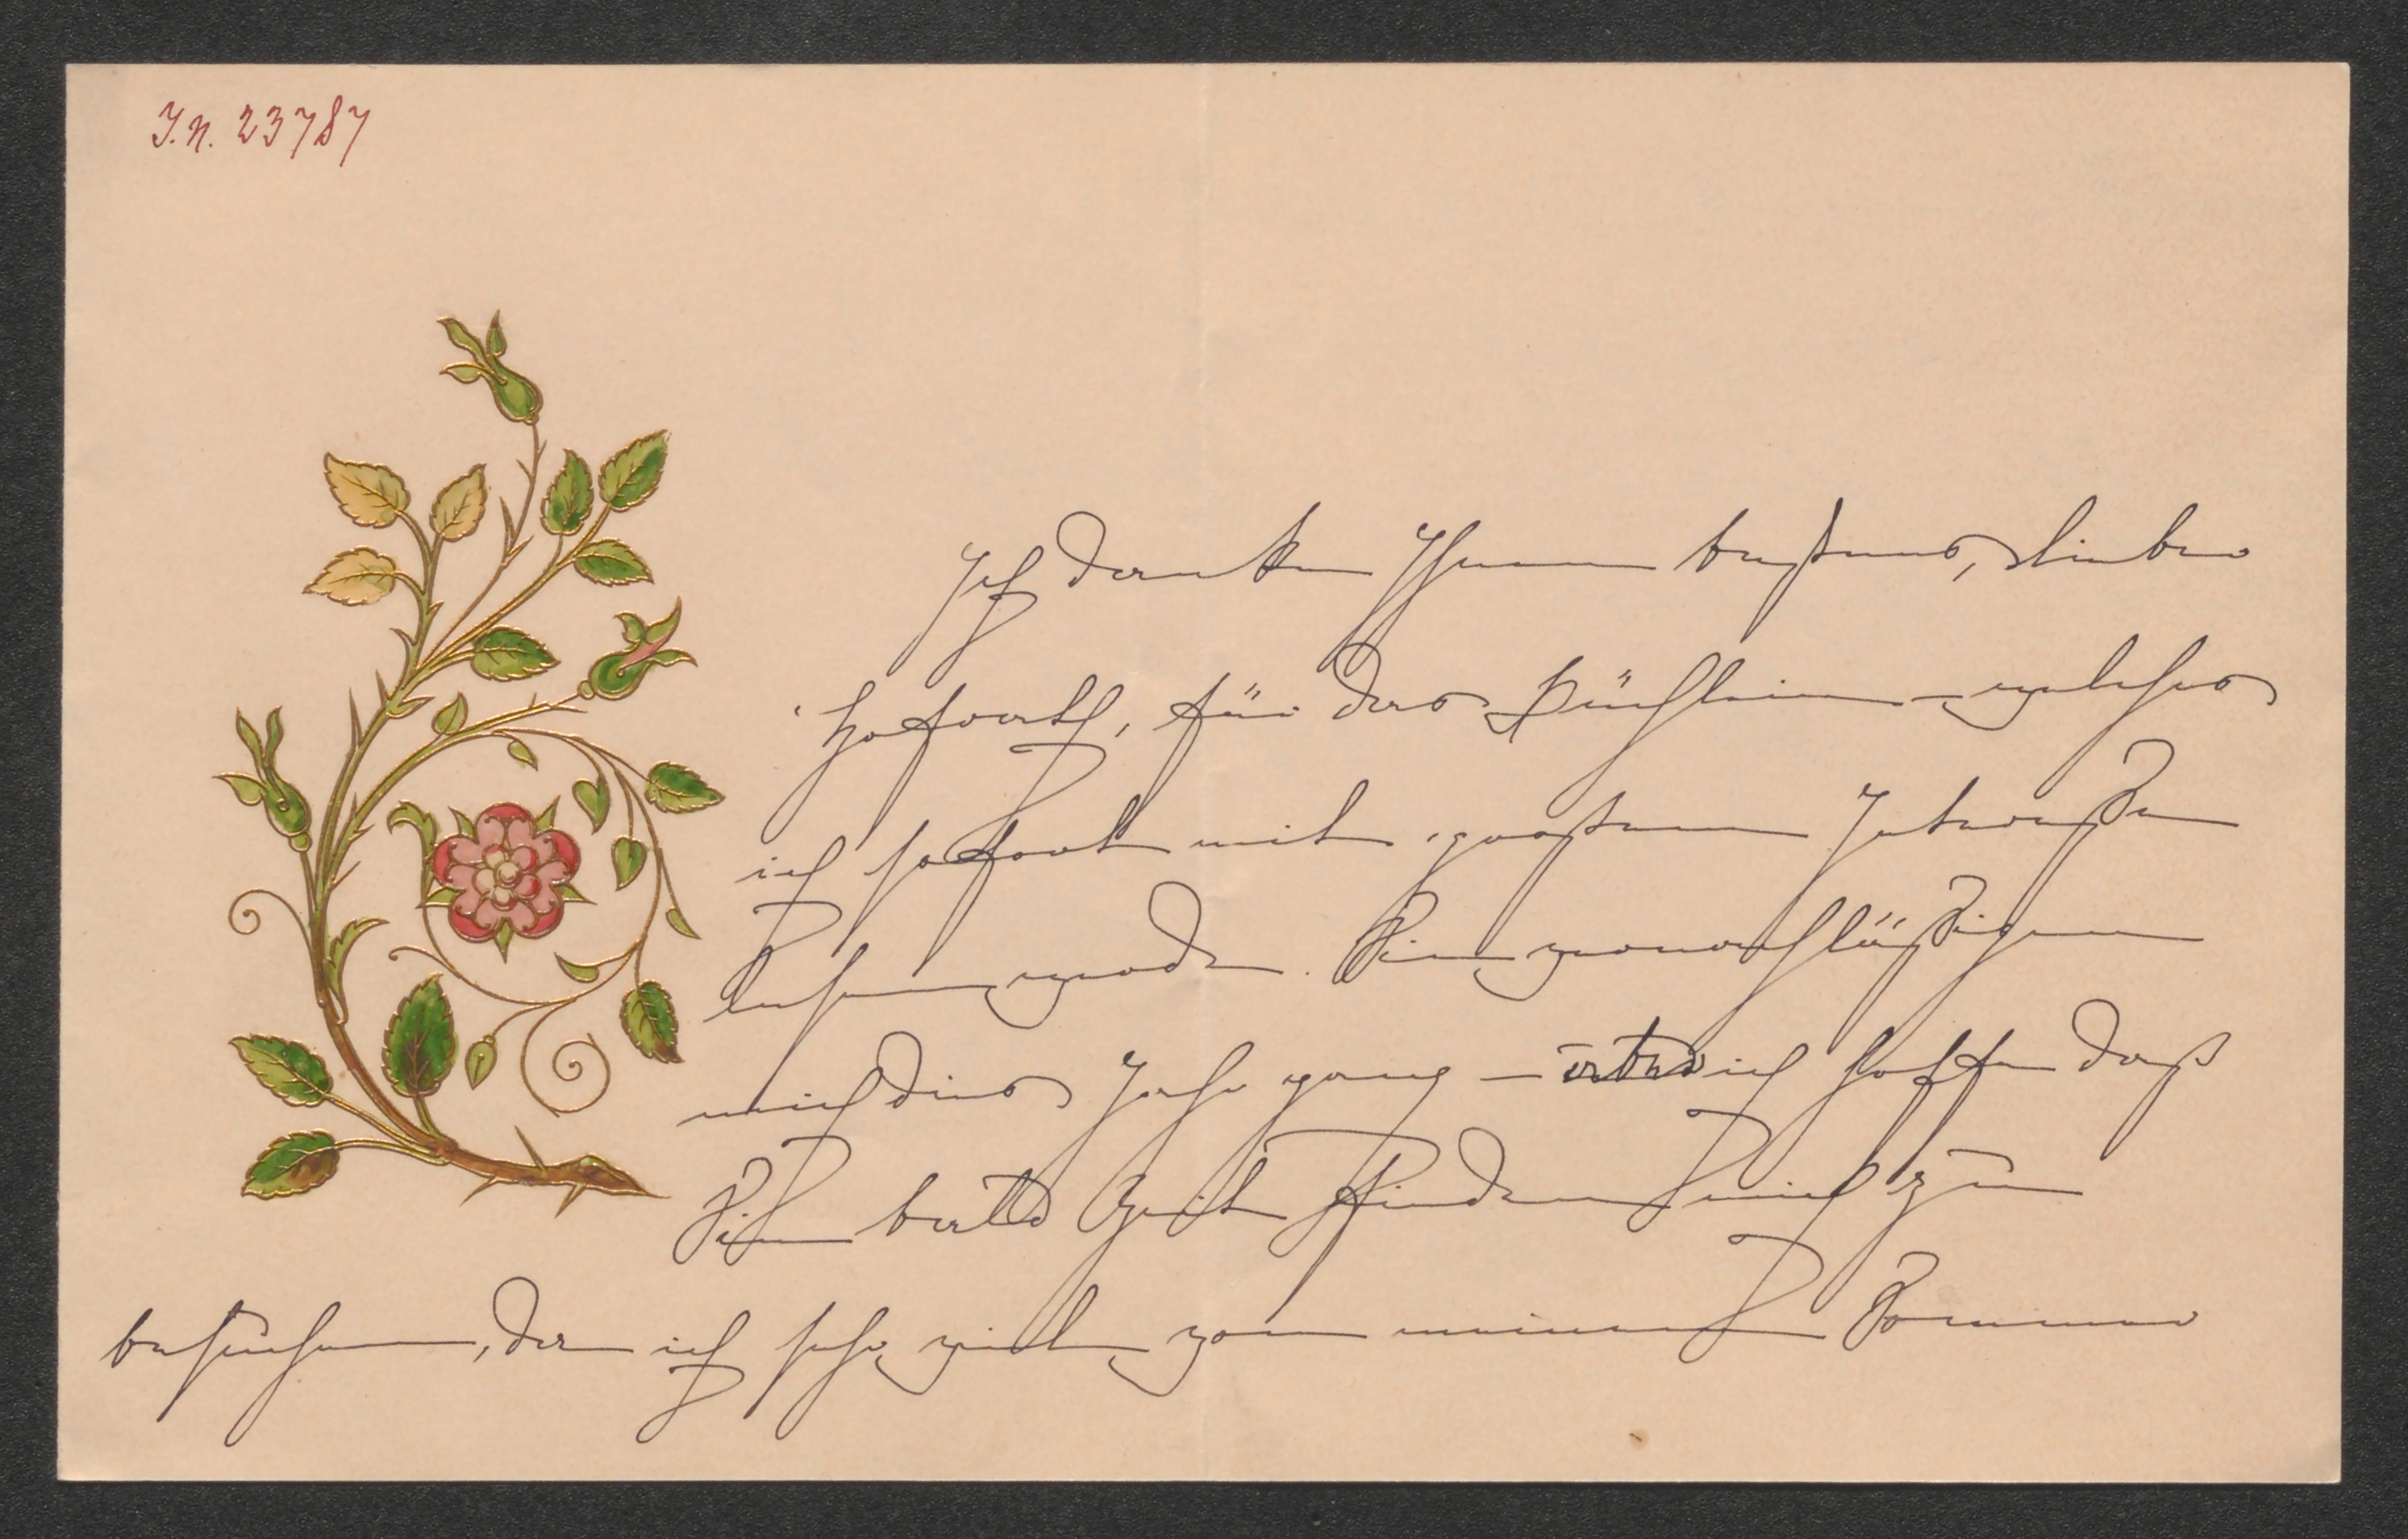 I.N. 23787
Ich danke Ihnen bestens, lieber
Hofrath, für das Büchlein – welches
ich sofort mit grossem Interesse
lesen werde. Sie vernachlässigen
mich dies Jahr ganz – aber ich hoffe daß
Sie bald Zeit finden mich zu
besuchen, da ich sehr viel von meinem Sommer